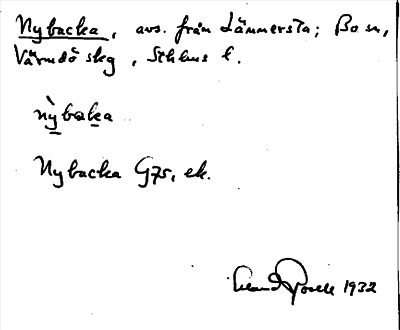 Nybacka, avs. från Lämmersta; Bo sn,
Värmdö skg, Sthlms l.
nỳbaka
Nybacka G75, ek.
1932